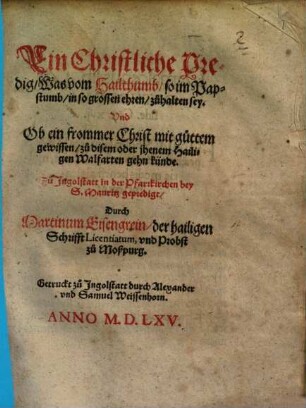 2
Ein Christliche Pre-
dig/ Was vom Hailthumb/ so im Pap-
stumb/ in so grossen ehren/ zůhalten sey.
Vnd
Ob ein frommer Christ mit gůttem
gewissen/ zů disem oder jhenem Haili-
gen Walfarten gehn künde.
Zů Ingolstatt in der Pfarrkirchen bey
S. Mauritz geprediget/
Durch
Martinum Eisengrein/ der hailigen
Schrifft Licentiatum, vnd Probst
zů Mospurg.
Getruckt zů Ingolstatt durch Alexander
vnd Samuel Weissenhorn.
ANNO M. D. LXV.